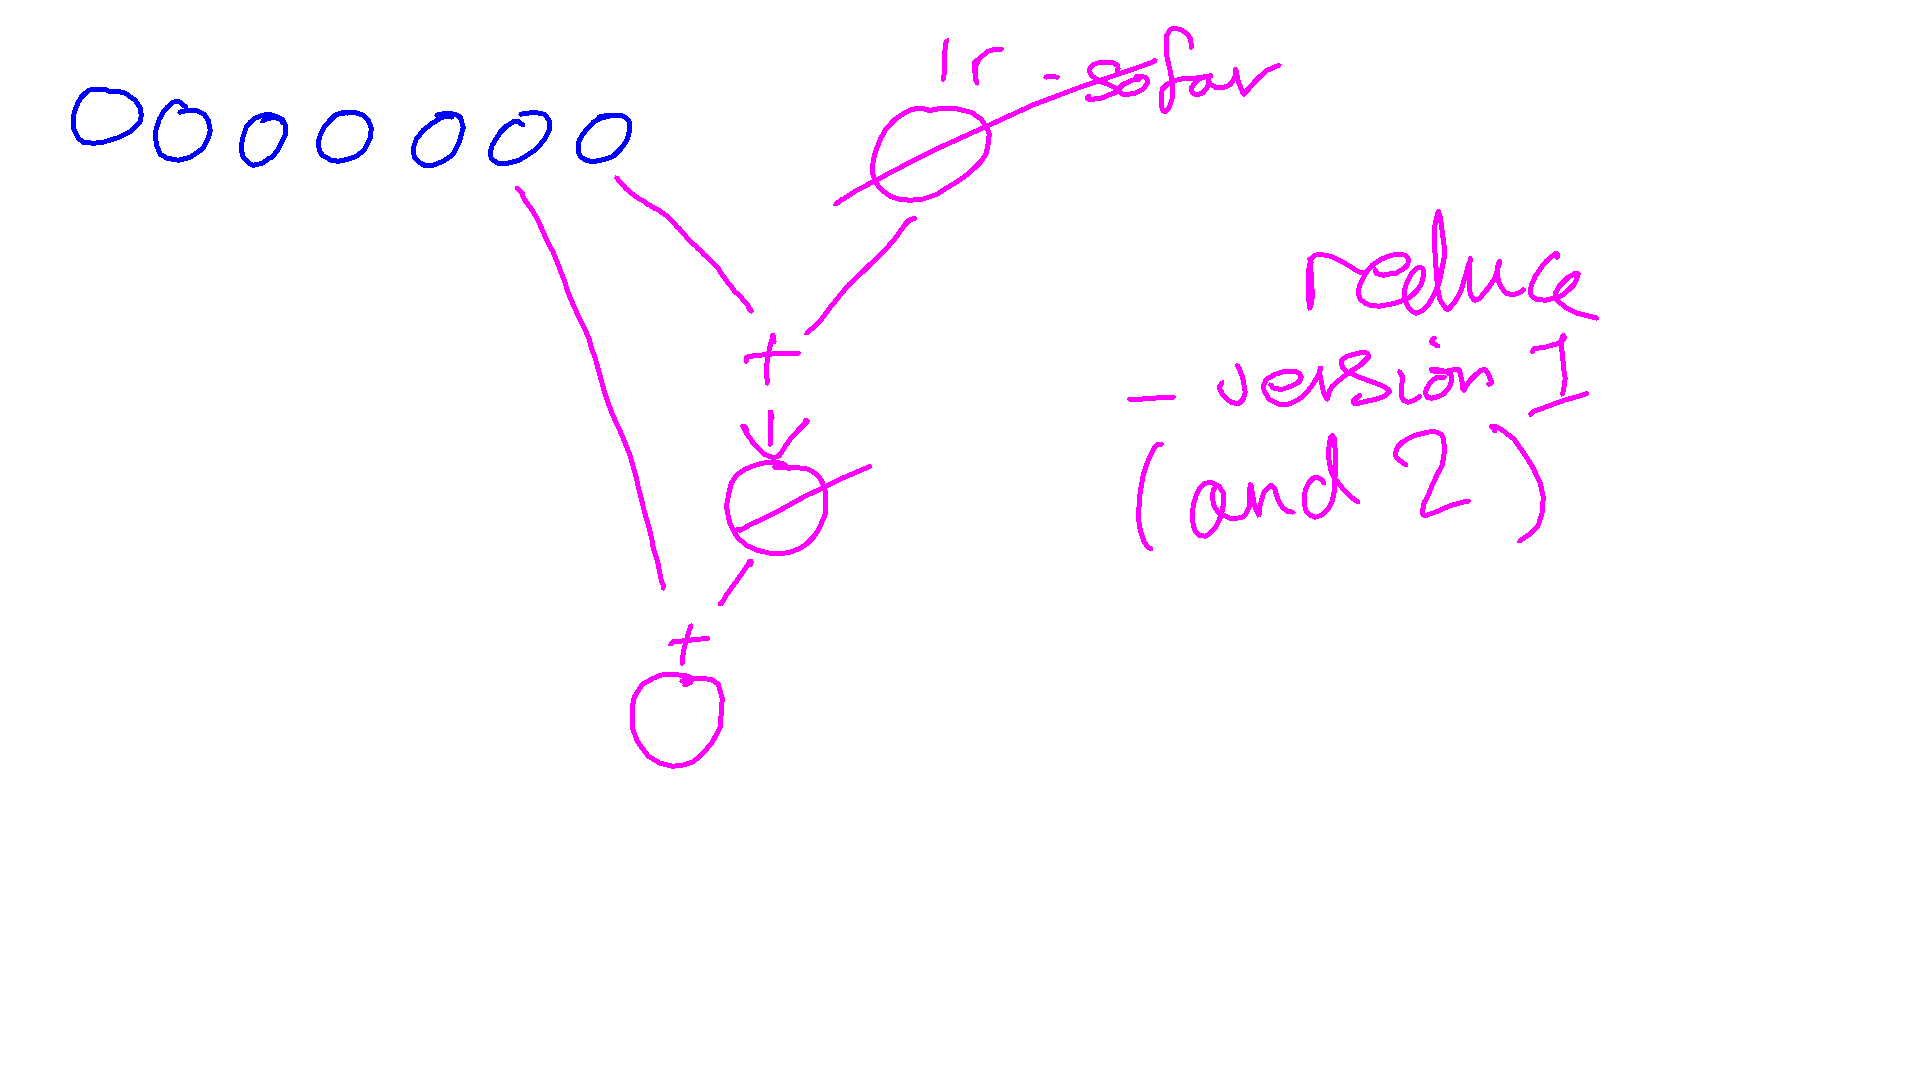 lr - sofar
+
+
reduce
- version 1
(and 2)